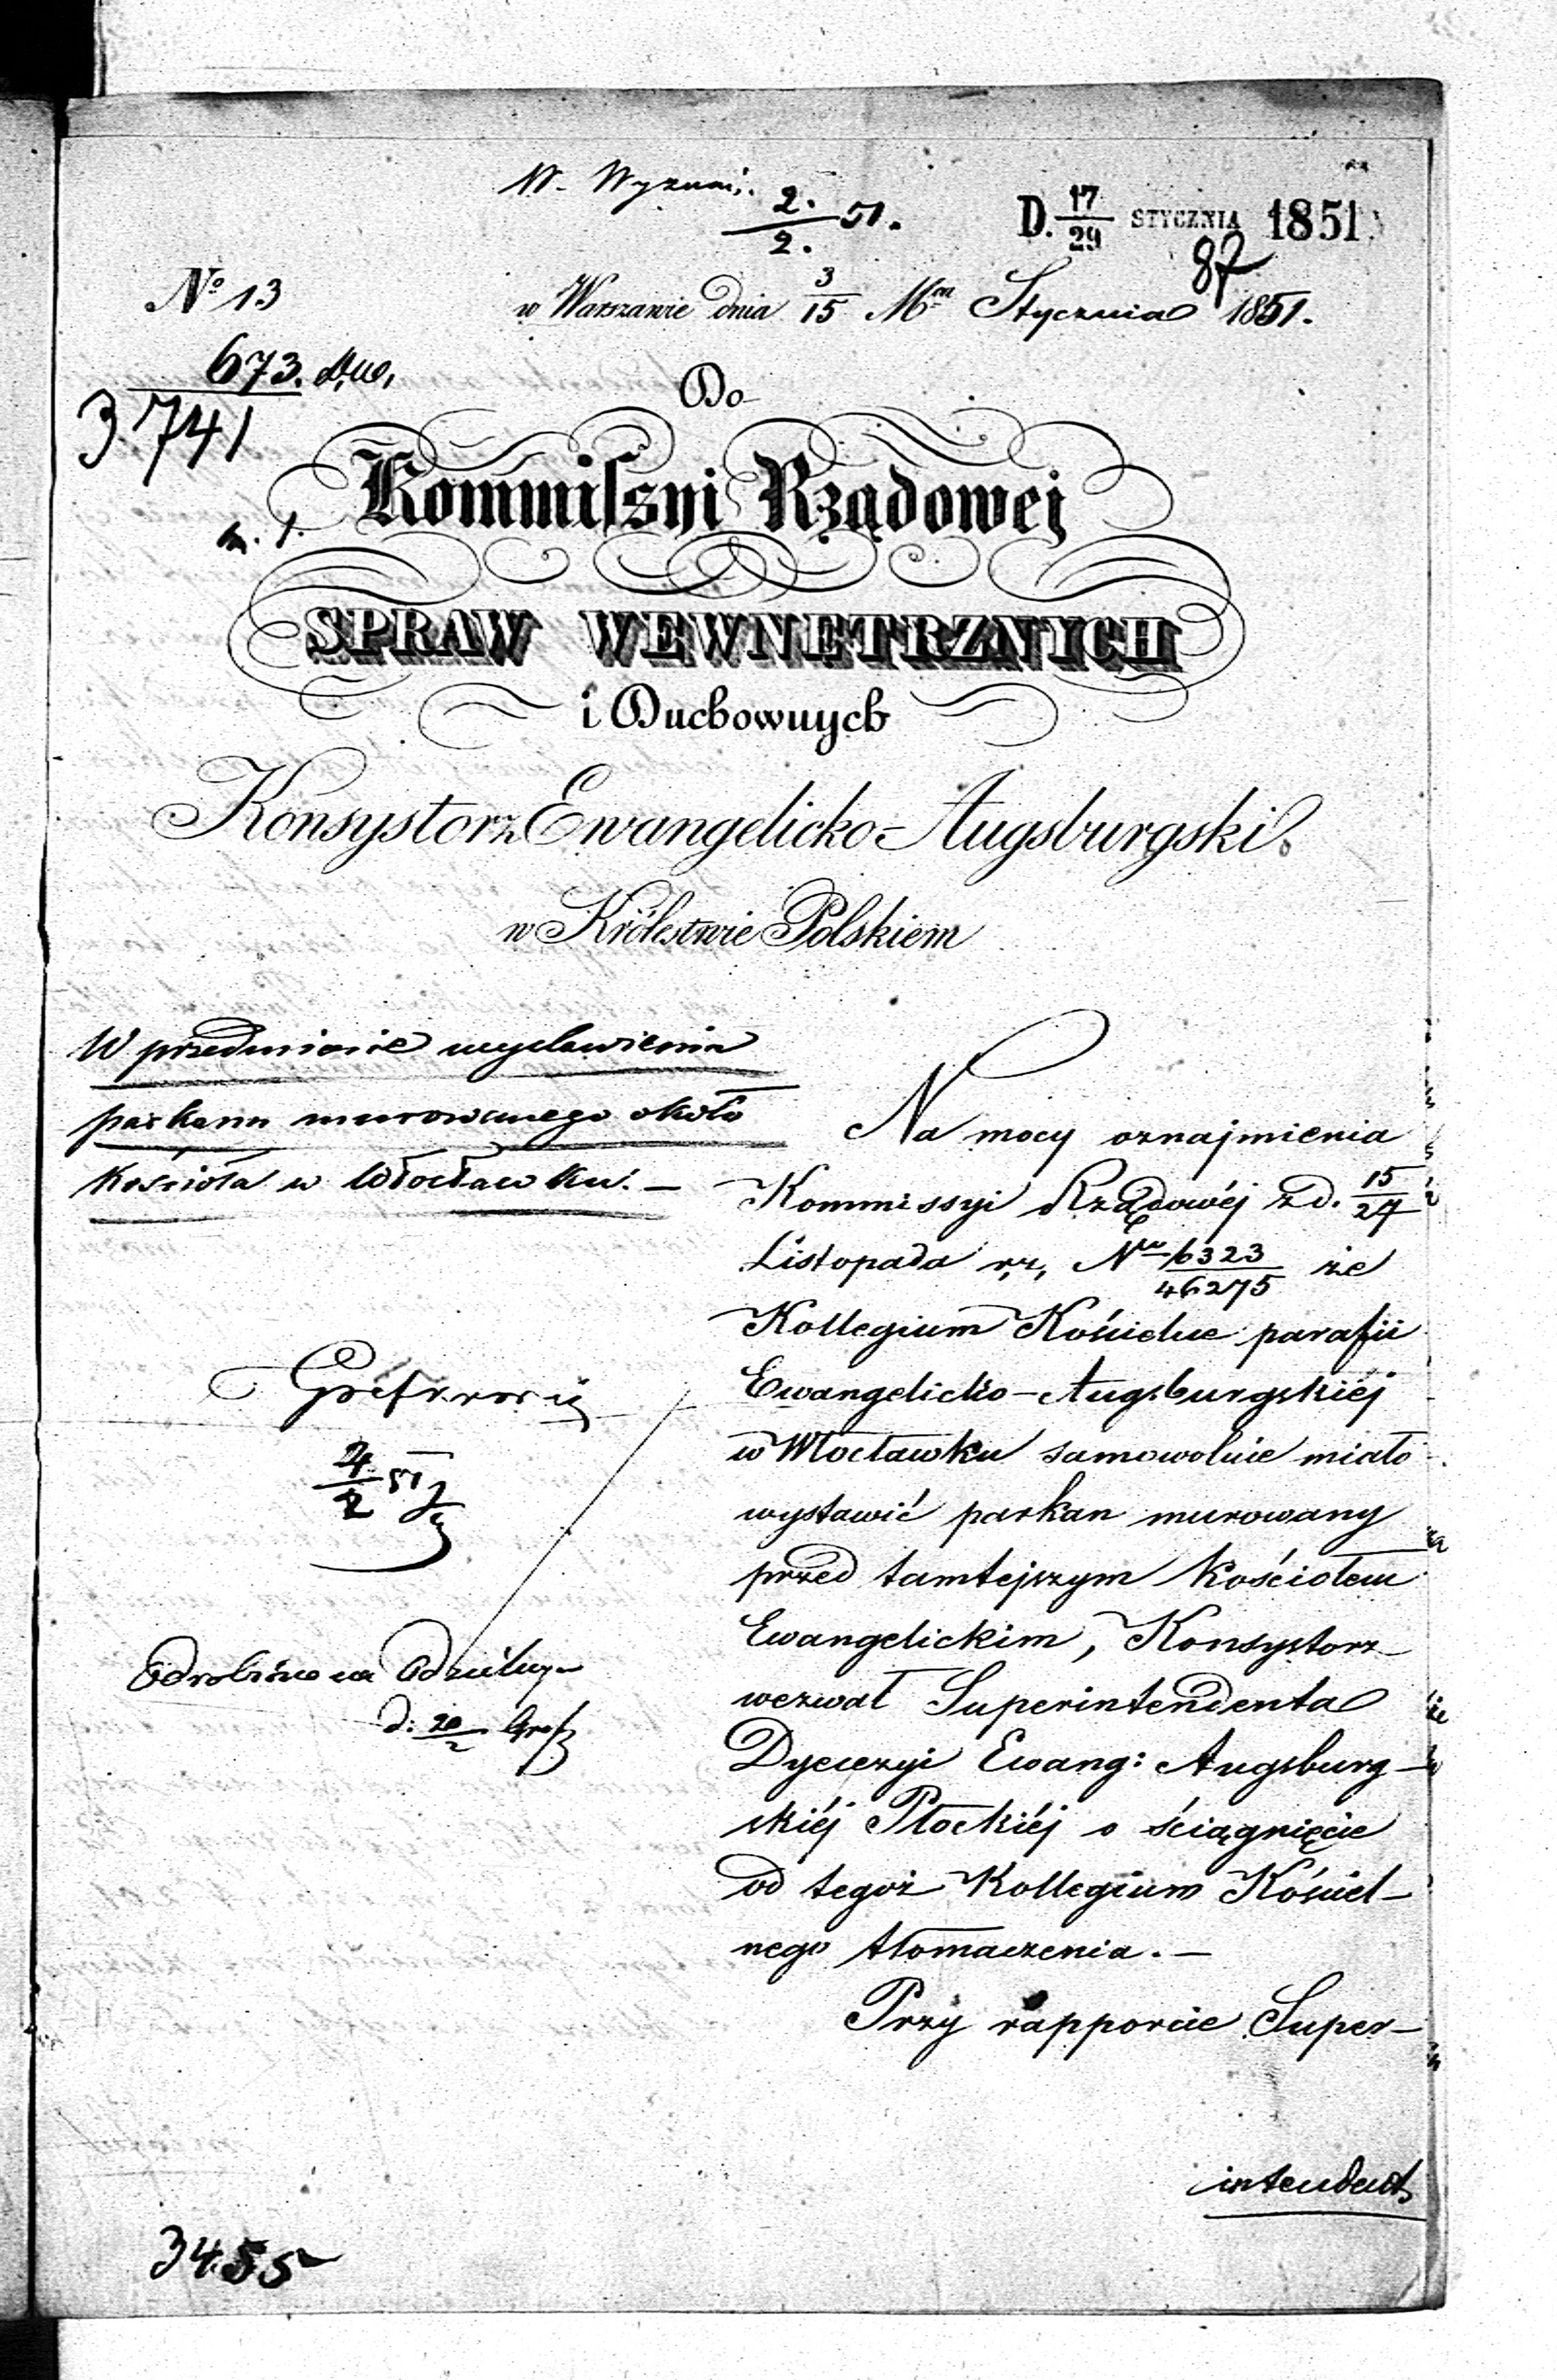 W. Wyznań.
2./2. 51.
D. 17/29 STYCZNIA 1851
87
№ 13
w Warszawie dnia 3/15 Mca Stycznia 1851.
673.
3741
Do
Kommiſsyi Rządowej
SPRAW WEWNETRZNICH
i Duchownych
Konsystorz Ewangelicko-Augsburgski
w Królestwie Polskiem
W przedmiocie wystawienia
parkanu murowanego około
Kościoła w Włocławku. –
Na mocy oznajmienia
Kommissyi Rządowéj z d. 15/27
Listopada r. z. Nru 6323/46275 że
Kollegium Kościelne parafii
Ewangelicko-Augsburgskiéj
w Włocławku samowolnie miało
wystawić parkan murowany
przed tamtejszym Kościołem
Ewangelickim, Konsystorz
wezwał Superintendenta
Dyecezyi Ewang: Augsburg-
skiéj Płockiéj o ściągnięcie
od tegoż Kollegium Kościel-
nego tłomaczenia. –
Przy rapporcie Super-
intendent
4/2 51
d: 20/2
3455